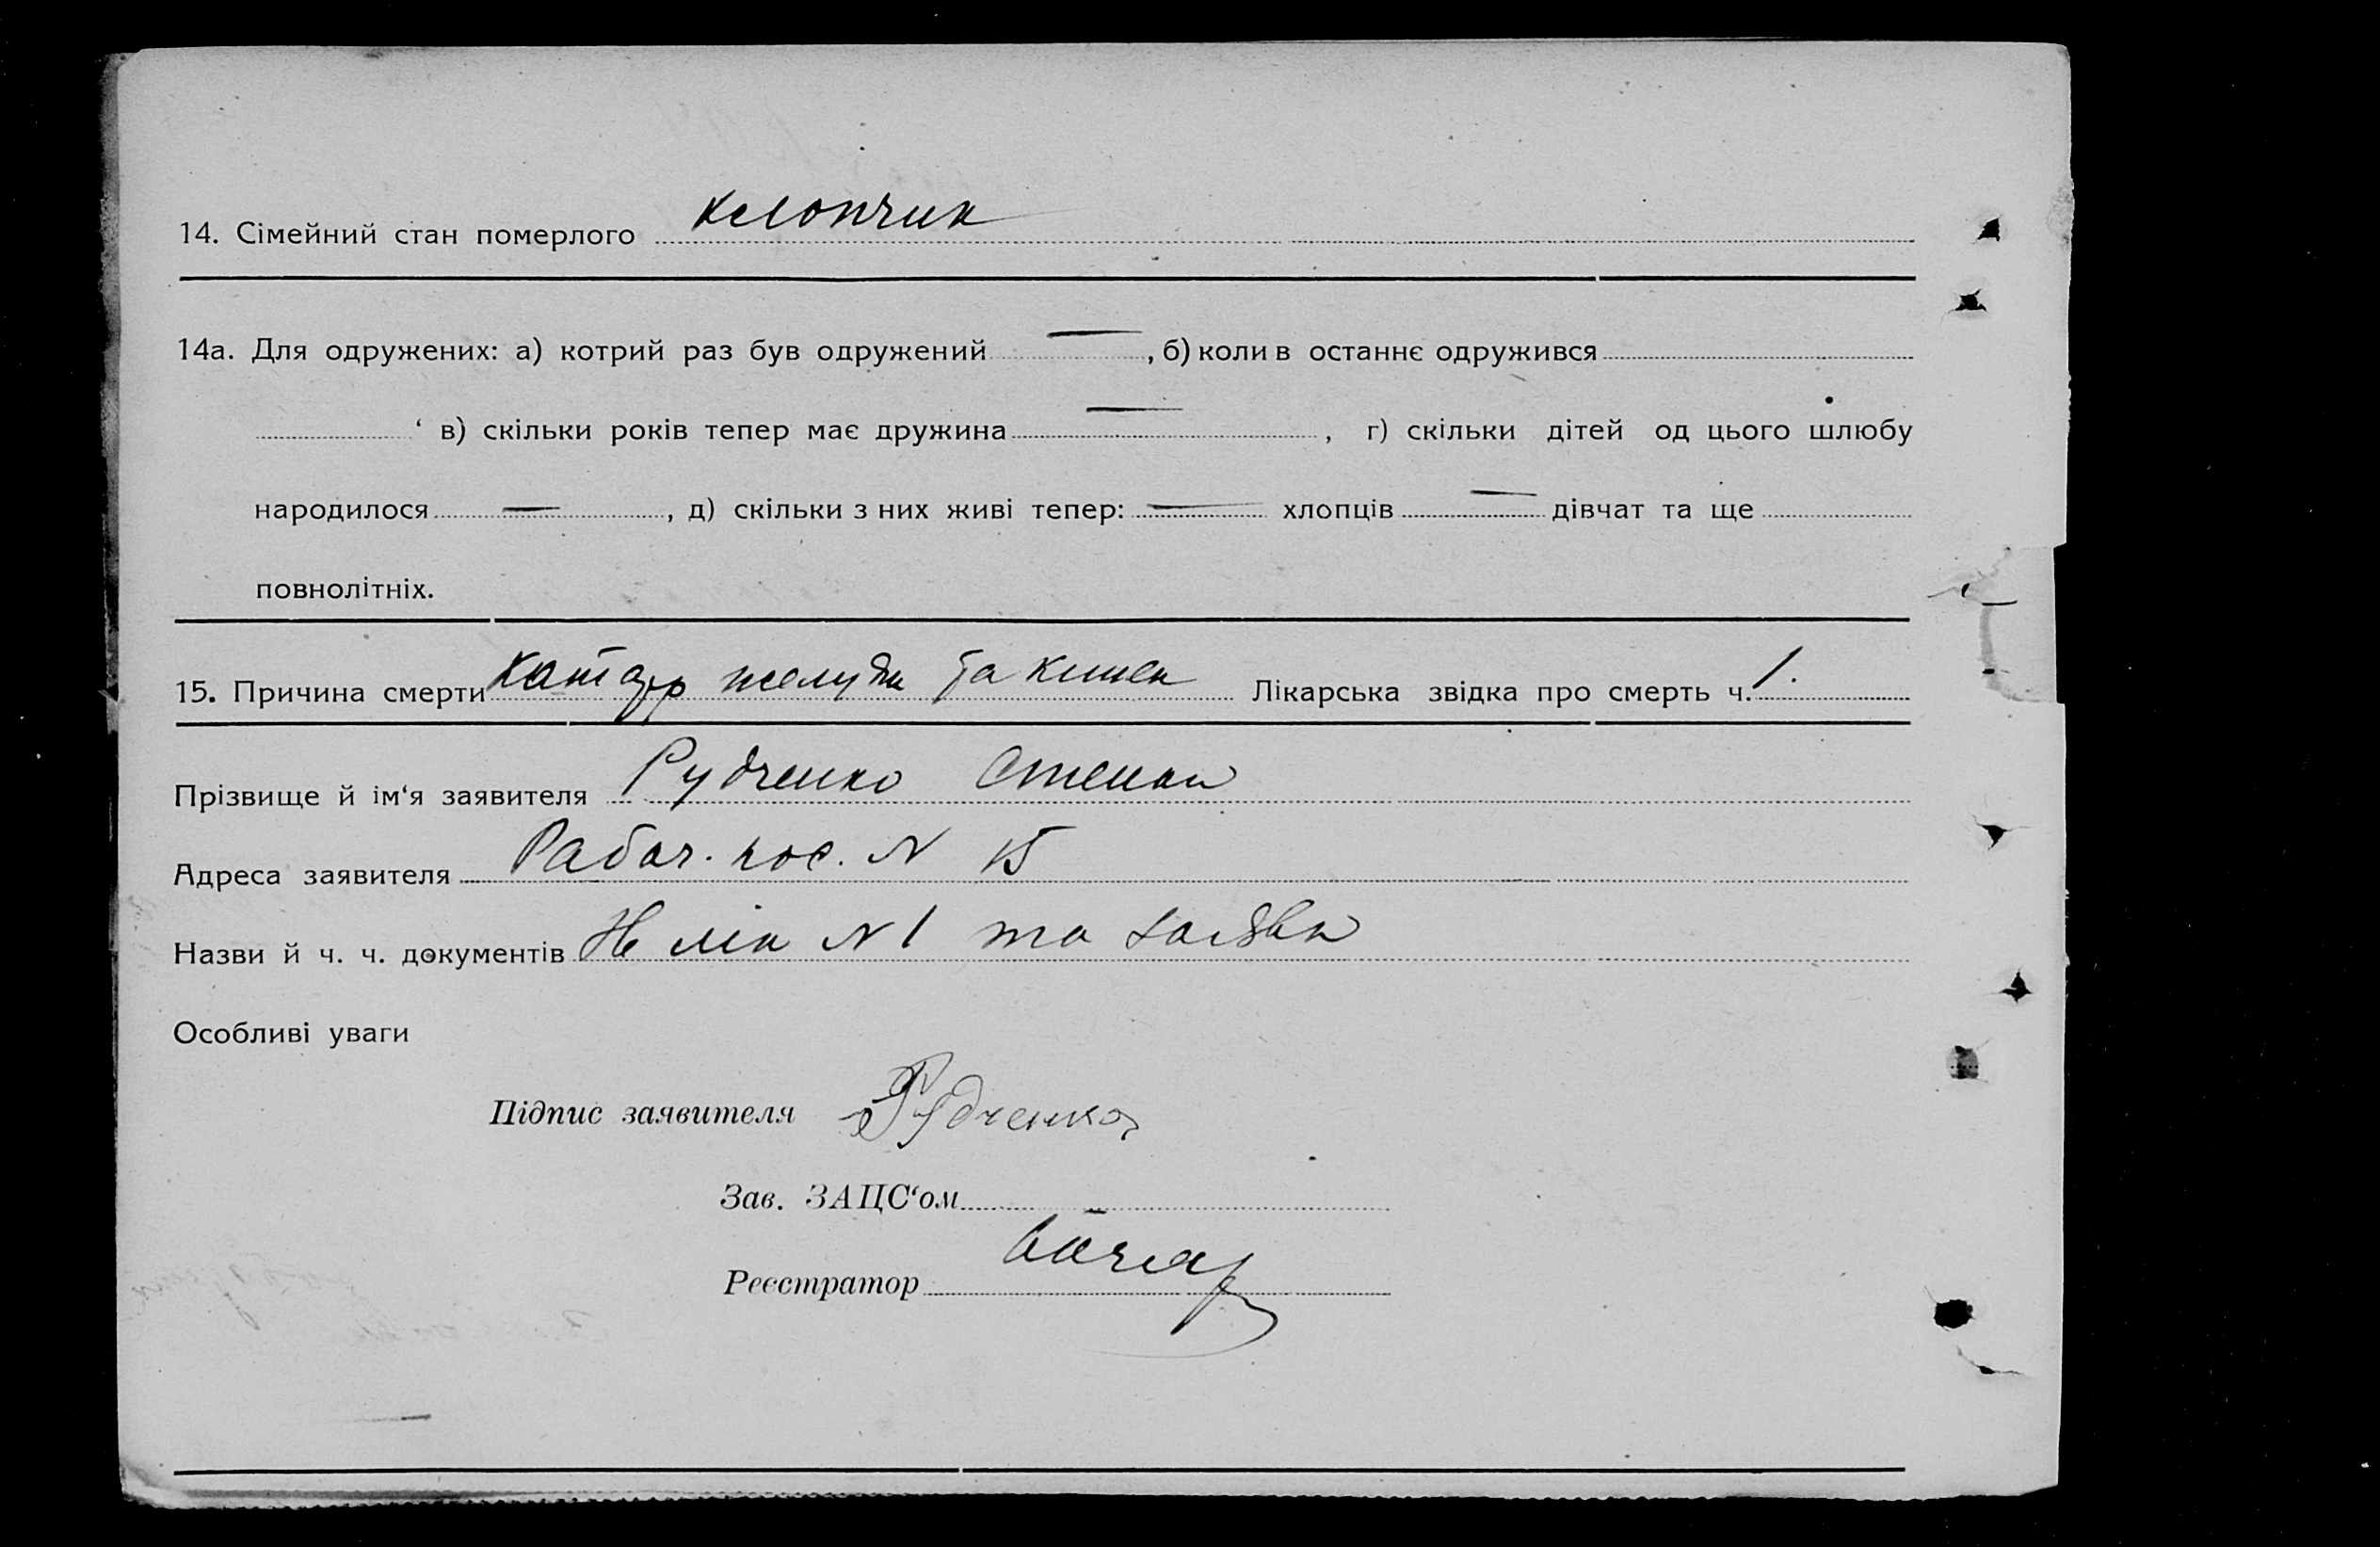 14. Сімейний стан померлого хлопчик
14а. Для одружених: а) котрий раз був одружений —, б) коли в останнє одружився
‘ в) скільки років тепер має дружина —, г) скільки дітей од цього шлюбу
народилося —, д) скільки з них живі тепер: — хлопців — дівчат та ще
повнолітніх.
15. Причина смерти Катарр желудк та кишек Лікарська звідка про смерть ч. 1.
Прізвище й ім‘я заявителя Рудченко Степан
Адреса заявителя Рабоч. пос. N 15
Назви й ч. ч. документів лік N 1 та заявка
Особливі уваги
Підпис заявителя Рудченко
Зав. ЗАЦС‘ом
Реєстратор